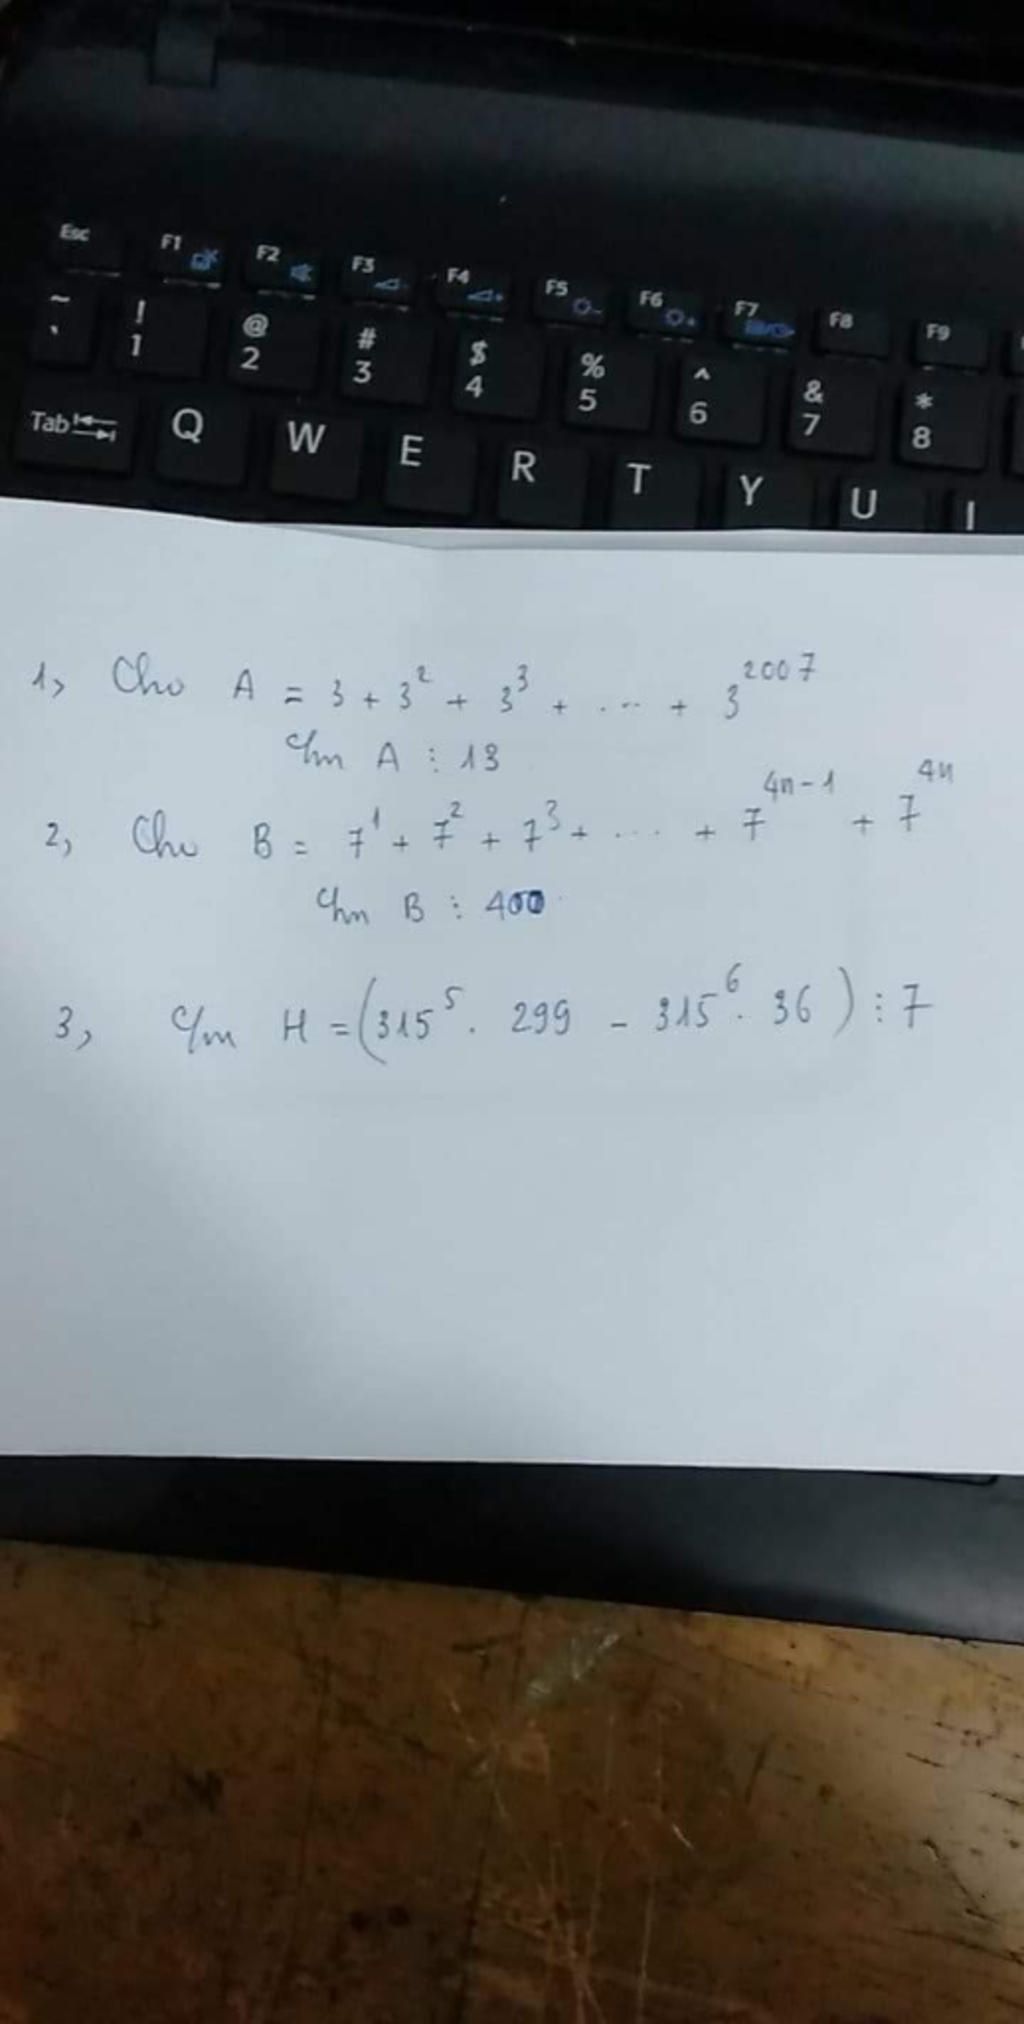 Esc F1 F2 F3 F4 F5 F6 F7 F8 F9
~ ! @ # $ % ^ & *
` 1 2 3 4 5 6 7 8
Tab Q W E R T Y U I
1, Cho A = 3 + 3² + 3³ + ... + 3²⁰⁰⁷
c/m A ⋮ 13
2, Cho B = 7¹ + 7² + 7³ + .... + 7⁴ⁿ⁻¹ + 7⁴ⁿ
c/m B ⋮ 400
3, c/m H = (315⁵ . 299 - 315⁶ . 36) ⋮ 7